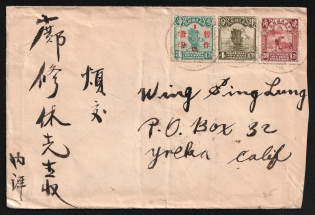 鄺修休先生收
煩交
內詳
Wing Sing Lung
P.O. Box 32
yreka calif